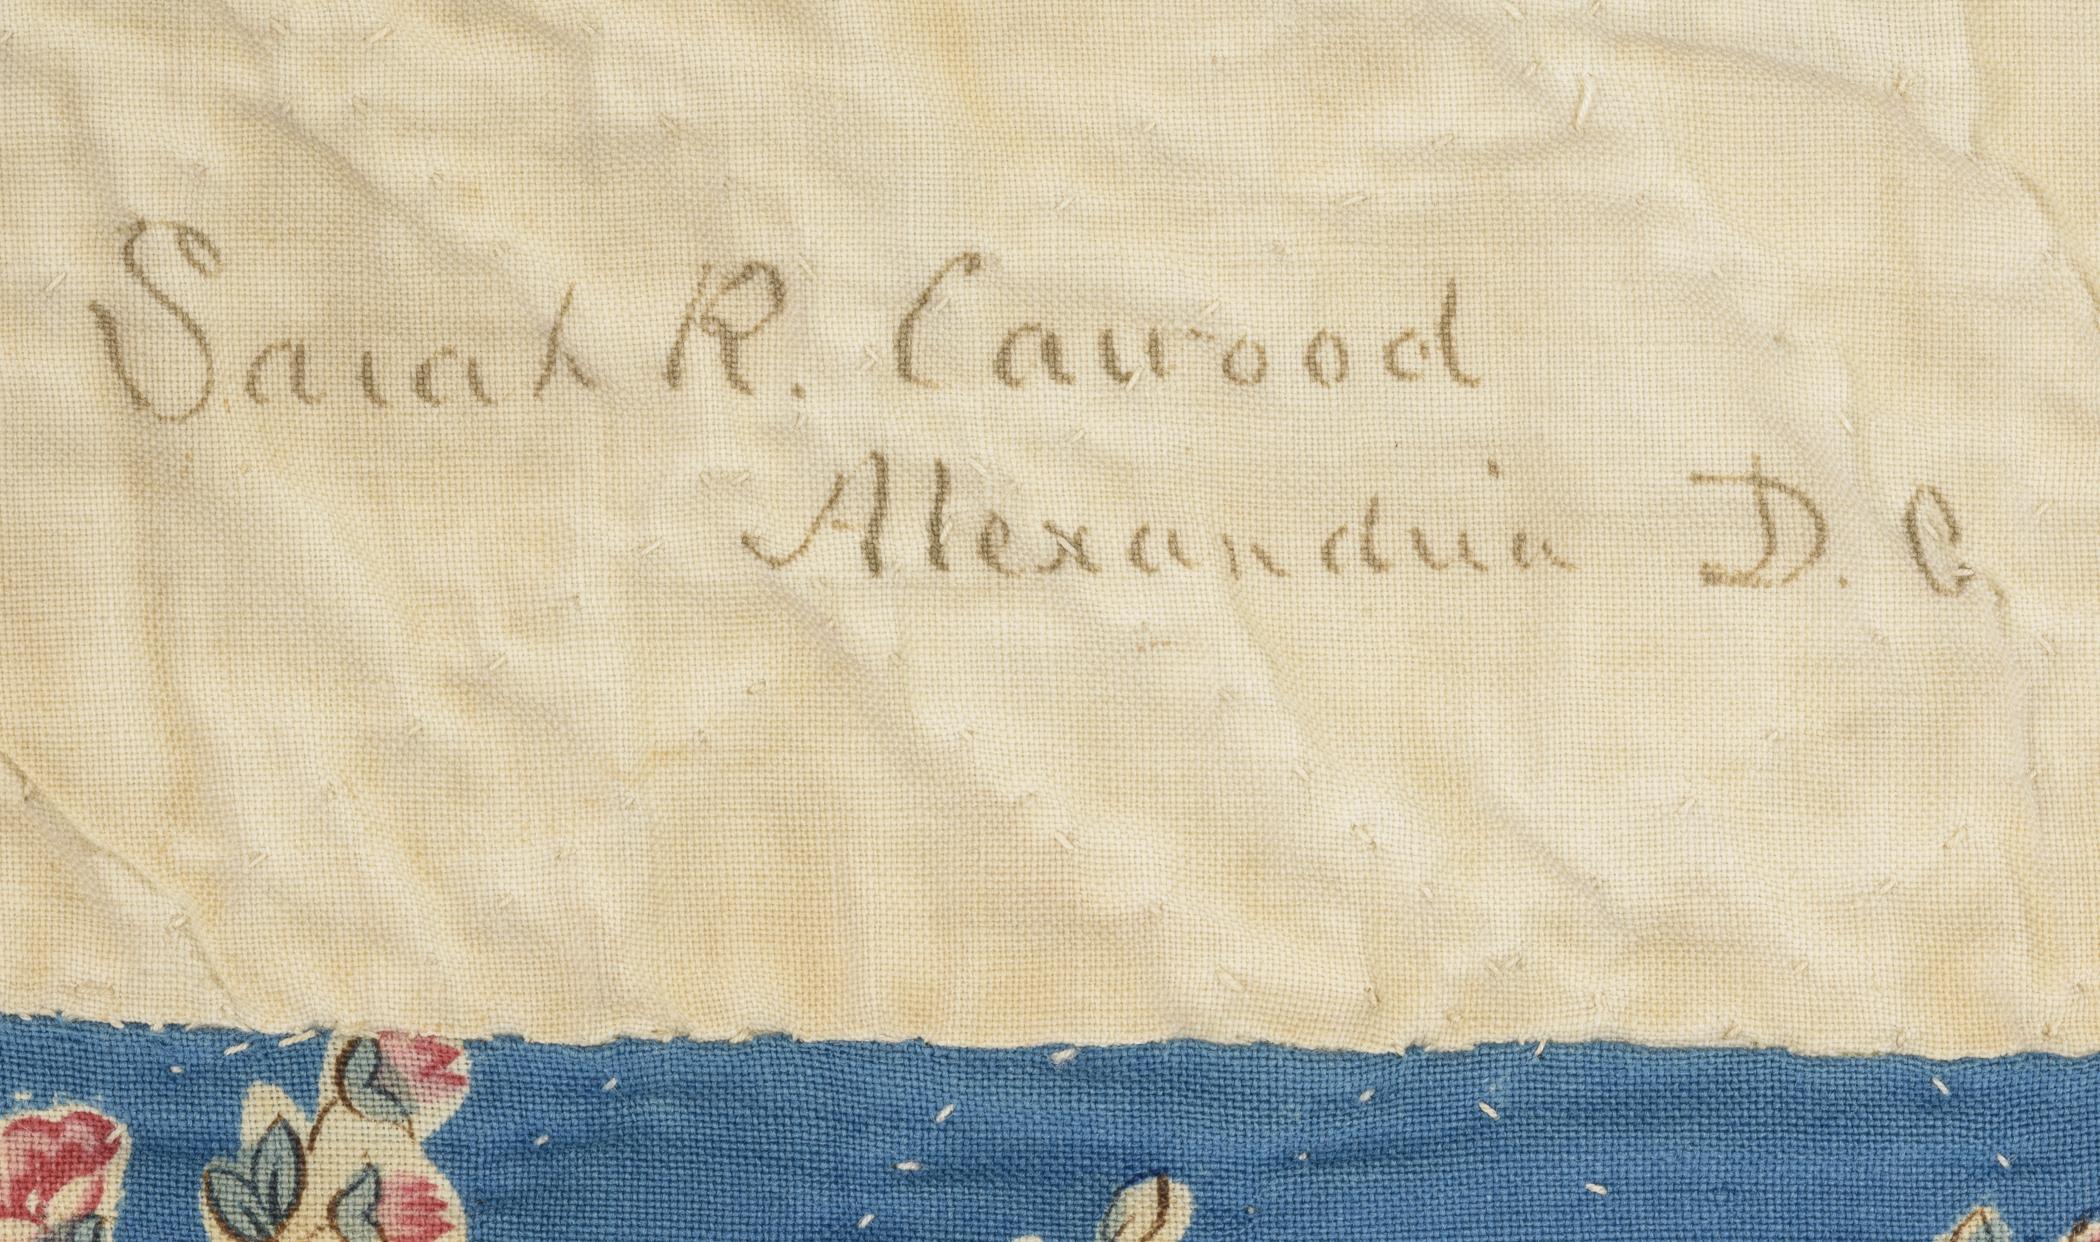 Sarah R. Cawood
Alexandria D. C,